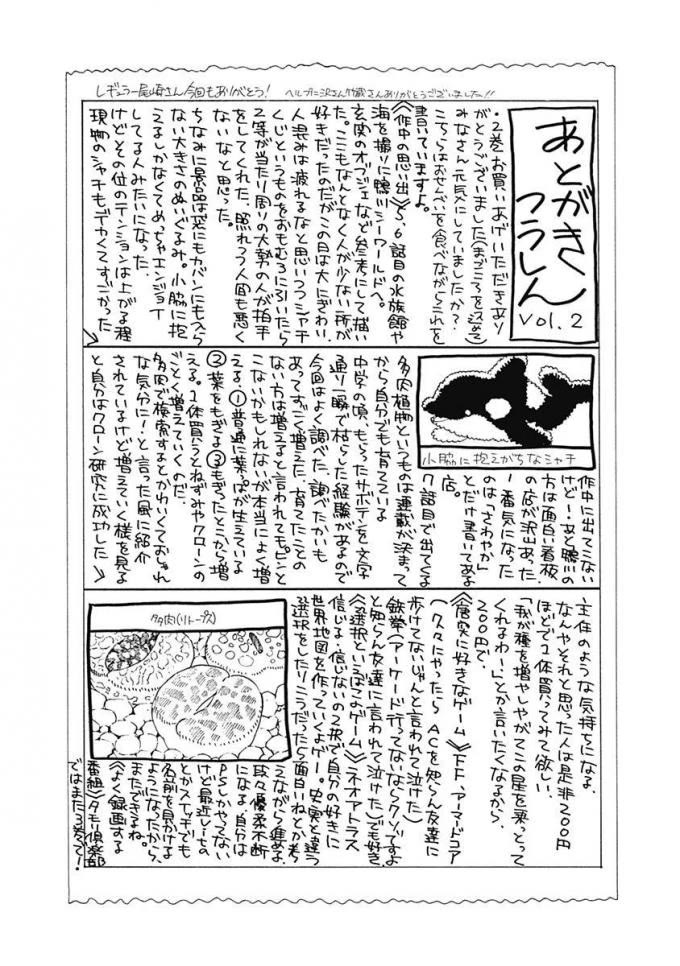 レギュラー尾崎さん今回もありがとう! ヘルプに沢さん
さんありがとうございました!!
あとがき
つうしん
vol.2
・2巻お買いあげいただきあり
がとうございました(まごころを込めて)
みなさん元気にしていましたか?
こちらはおせんべいを食べながらこれを
書いていますよ。
《作中の思い出》5、6話目の水族館や
海を撮りに鴨川シーワールドへ。
玄関のオブジェなど参考にして描い
た。ここもなんとなく人が少ない所が
好きだったのだがこの日は大にぎわい。
人混みは疲れるなと思いつつシャチ
くじというものをおもむろに引いたら
2等が当たり周りの大勢の人が拍手
をしてくれた。照れつつ人間も悪く
ないなと思った。
ちなみに景品は袋にもカバンにも入ら
ない大きさのぬいぐるみ。小脇に抱
えるしかなくてめっちゃエンジョイ
してる人みたいになった
けどその位のテンションは上がる程
現物のシャチもデカくてすごかった
小脇に抱えがちなシャチ
作中に出てこない
けど!あと鴨川の
方は面白い看板
の店が沢山あった
!一番気になった
のは「さわやか」
とだけ書いてある
店。
7話目で出てくる
多肉植物というものは連載が決まって
から自分でも育てている
中学の頃、もらったサボテンを文字
通り一瞬で枯らした経験があるので
今回はよく調べた、調べたかいも
あってすごく増えた、育てたことの
ない方は増えると言われてもピンと
こないかもしれないが本当によく増
える。①普通に葉っぱが生えている
②葉をもぎる③もぎったとこから増
える。1体買うとねずみやクローンの
ごとく増えていくのだ。
多肉で検索するとかわいくておしゃれ
な気分に!と言った風に紹介
されているけど増えていく様を見る
と自分はクローン研究に成功した
主任のような気持ちになる。
なんやそれと思った人は是非200円
ほどで1体買ってみて欲しい、
「我が種を増やしやがてこの星を乗っとって
くれるわー」とか言いたくなるから、
200円で。
《唐突に好きなゲーム》FF、アーマードコア
(久々にやったら ACを知らん友達に
歩けてないじゃんと言われて泣けた)
鉄拳(アーケード行ってないならクソですよ
と知らん友達に言われて泣けた)でも好き、
《選択といえばこのゲーム》ネオアトラス
信じる・信じないの2択で自分の好きに
世界地図を作っていくよゲー。史実と違う
選択をしたりこうだったら面白いねとか考
えながら進める。
段々優柔不断
になる。自分は
PSしかやってない
けど最近レーセの
とかスイッチでも
名前を見かける
ようになったから、
またできるね。
《よく録画する
番組》タモリ倶楽部
ではまた3巻で!
多肉(リトープス)